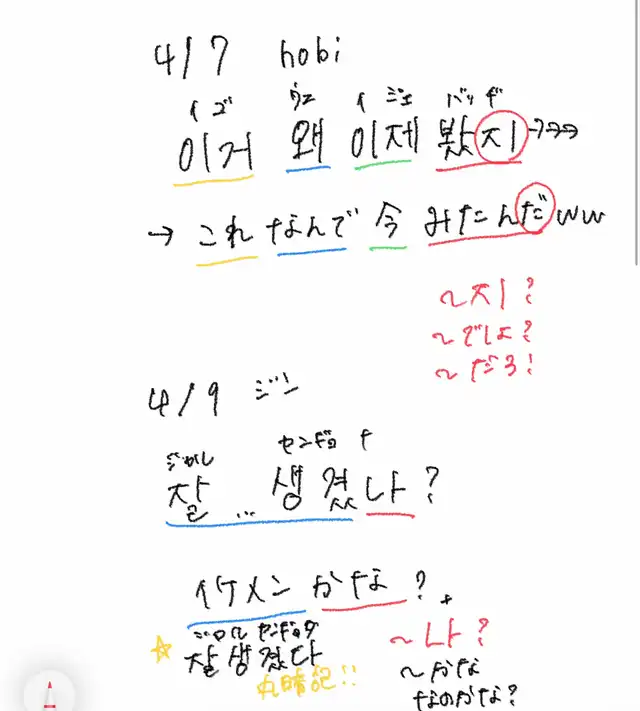 4/7 hobi
イゴ ウェ イジェ バッヂ
이거 왜 이제 봤지→→→
→ これ なんで 今 みたんだww
~지?
~でしょ?
~だろ!
4/9 ジン
センギョ ナ
잘... 생겼나?
イケメン かな?
センギョダ
☆ 잘생겼다
丸暗記!!
~나?
~かな
なのかな?